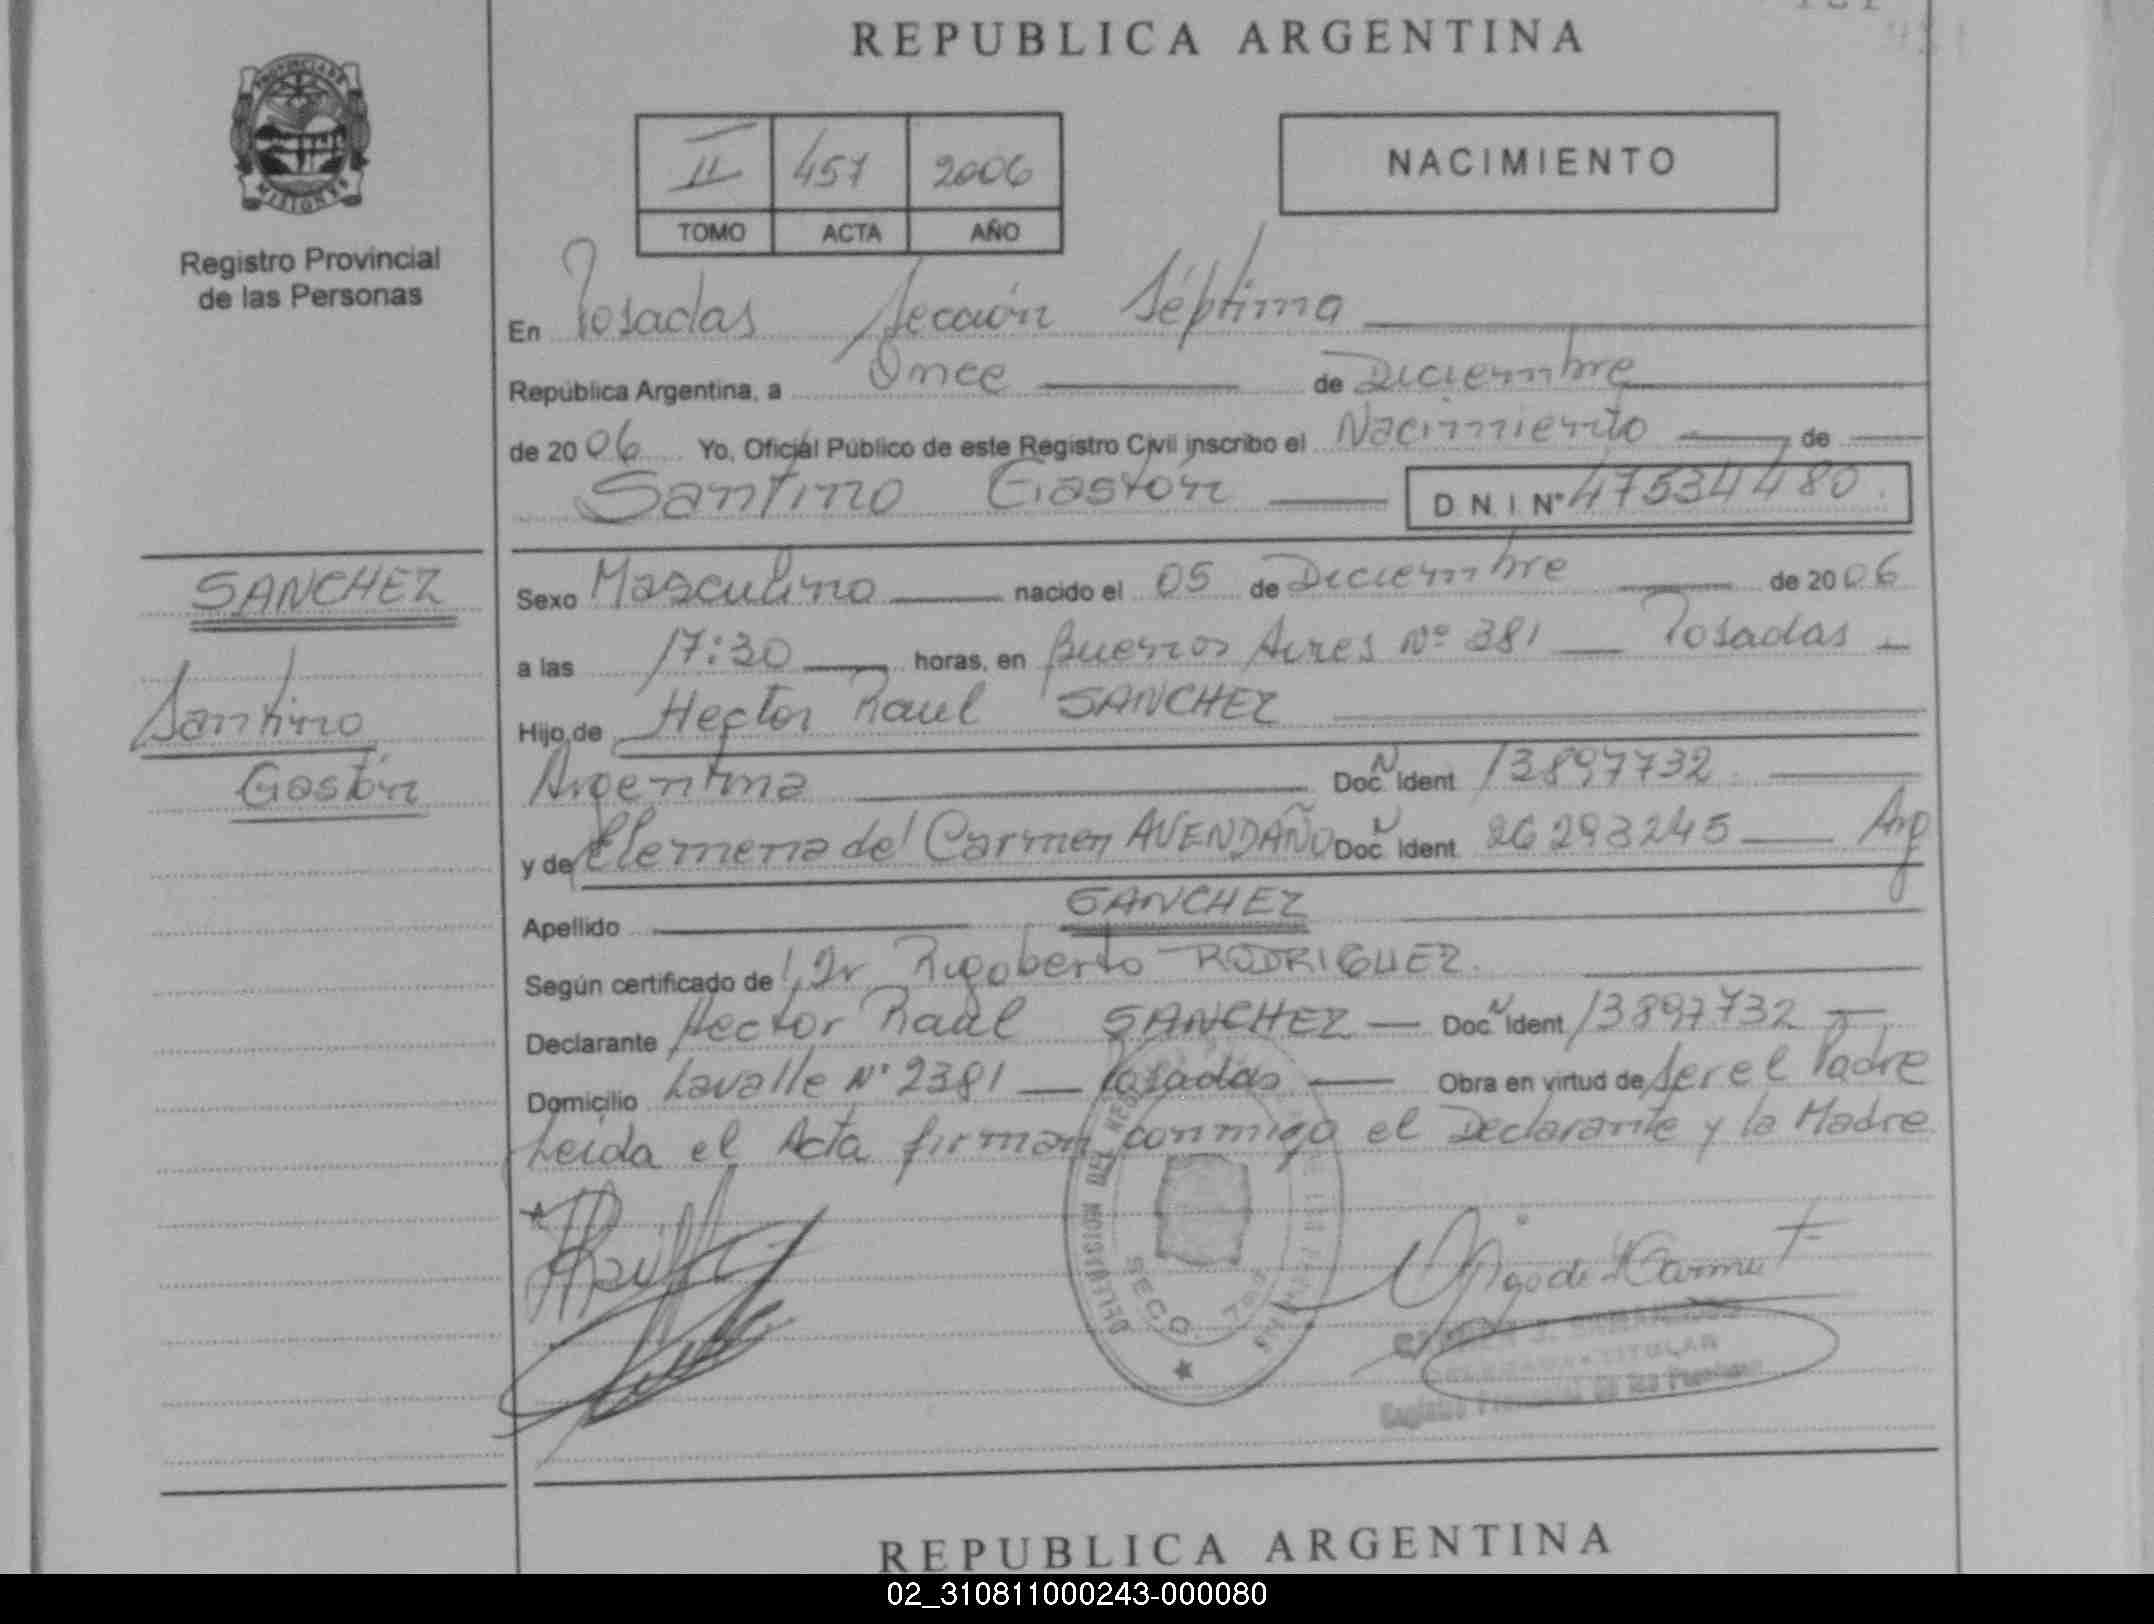 REPUBLICA ARGENTINA
PROVINCIA DE
MISIONES
Registro Provincial
de las Personas
II 457 2006
TOMO ACTA AÑO
NACIMIENTO
En Posadas Sección Séptima
República Argentina, a Once de Diciembre
de 2006 Yo, Oficial Público de este Registro Civil inscribo el Nacimiento de
Santino Gastón D N I Nº 47534480
SANCHEZ
Santino
Gastón
Sexo Masculino nacido el 05 de Diciembre de 2006
a las 17:30 horas, en Buenos Aires Nº 381 Posadas
Hijo de Hector Raul SANCHEZ
Argentina Doc N Ident 13897732
y de del Carmen AVENDAÑO Doc N Ident 26293245 Arg
Apellido SANCHEZ
Según certificado de Dr Rigoberto RODRIGUEZ
Declarante Hector Raul SANCHEZ Doc N Ident 13897732
Domicilio Lavalle Nº 2381 Posadas Obra en virtud de ser el Padre
Leida el Acta firman conmigo el Declarante y la Madre
SECC. 7
TITULAR
Registro Provincial de las Personas
REPUBLICA ARGENTINA
02_310811000243-000080